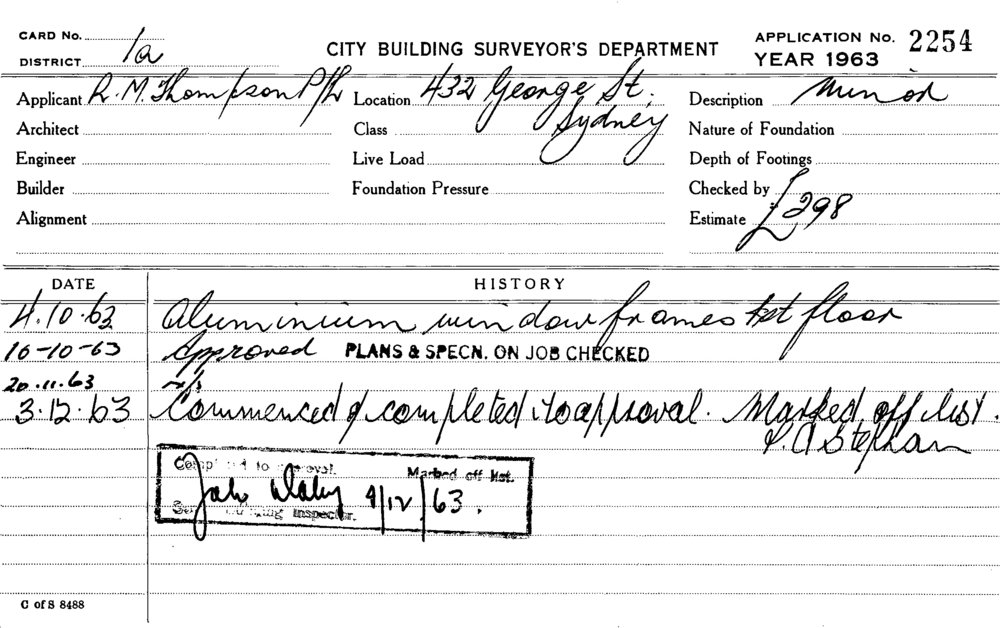 CARD No.
DISTRICT 1a
CITY BUILDING SURVEYOR'S DEPARTMENT
APPLICATION No. 2254
YEAR 1963
Applicant R. M. Thompson P/L
Location 432 George St,
Sydney
Description Minor
Architect
Class
Nature of Foundation
Engineer
Live Load
Depth of Footings
Builder
Foundation Pressure
Checked by
Alignment
Estimate £298
DATE HISTORY
4.10.63 Aluminium window frames 1st floor
16-10-63 Approved PLANS & SPECN. ON JOB CHECKED
20.11.63 n/s
3.12.63 Commenced & completed to approval. Marked off list.
Completed to approval. Marked off list.
John 9/12/63.
Building Inspector.
C of S 8488